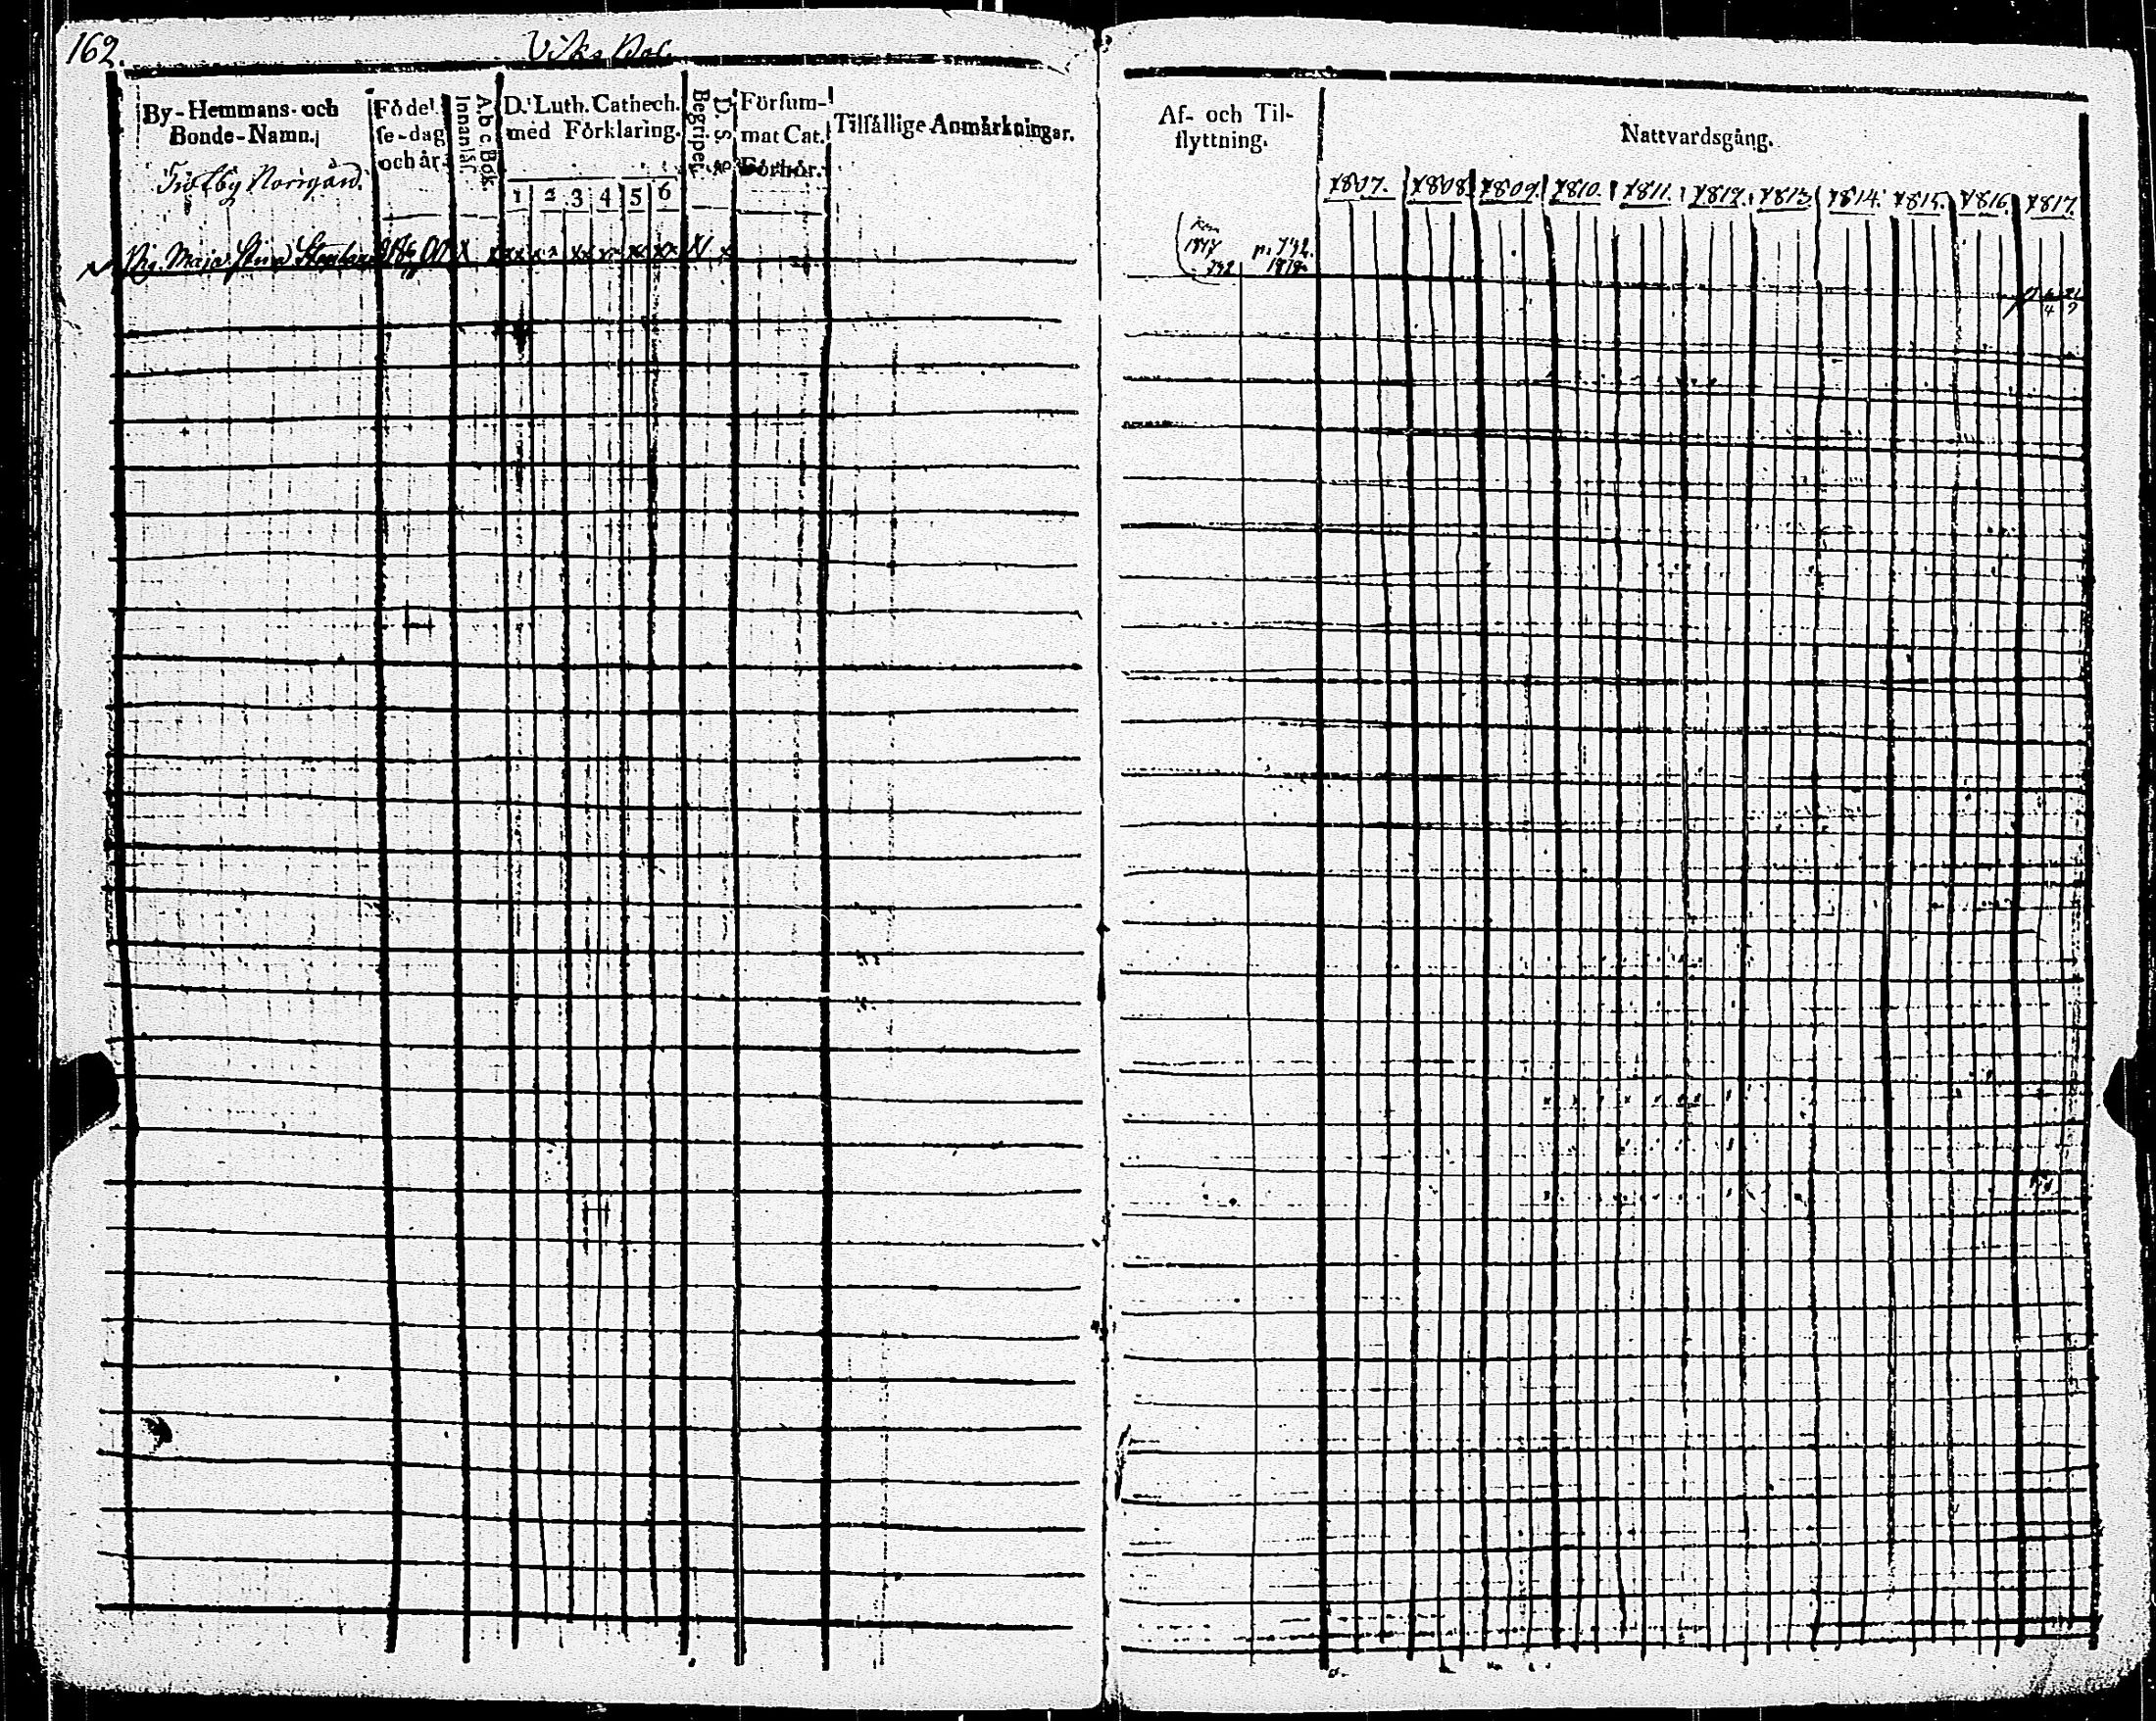 162.
Viks Rote
By-Hemmans- och
Bonde-Namn.
Födel-
se-dag
och år.
A b c Bok.
Innanläs.
D. Luth. Cathech.
med Förklaring.
1 2 3 4 5 6
D. s. s.
Begripet.
Försum-
mat Cat.
Förhör.
Tilfällige Anmärkningar.
Norrgård.
Pig. Maja Stina
Af- och Til-
flyttning.
Nattvardsgång.
1807. 1808. 1809. 1810. 1811. 1812. 1813. 1814. 1815. 1816. 1817.
1817